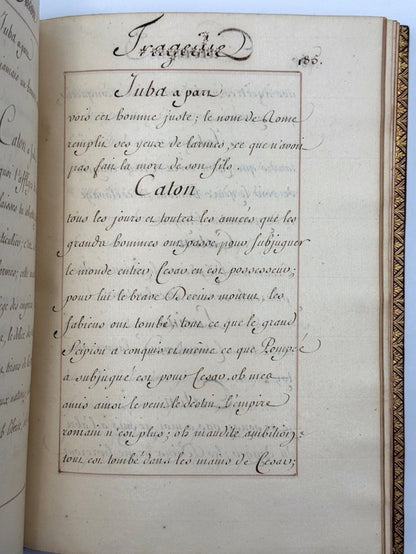 Tragedie
185.
Juba a part
vois cet homme juste; le nom de Rome
remplit ses yeux de larmes, ce que n'avoit
pas fait la mort de son fils
Caton
tous les jours et toutes les années que les
grands hommes ont passé pour subjuguer
le monde entier, Cesar en est possesseur;
pour lui le brave Decius mourut, les
fabiens ont tombé tout ce que le grand
Scipion a conquis et même ce que Pompée
a subjugué est pour Cesar, oh mes
amis ainsi le veut le destin, l'empire
romain n'est plus; oh maudite ambition,
tout est tombé dans les mains de Cesar;